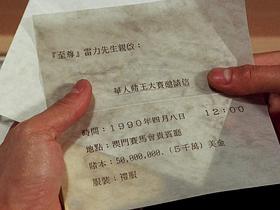 『至尊』雷力先生親啟：
華人賭王大賽邀請信
時間：1990年四月八日 12:00
地點：澳門賽馬會貴賓廳
賭本：50,000,000.(5千萬)美金
服裝：禮服